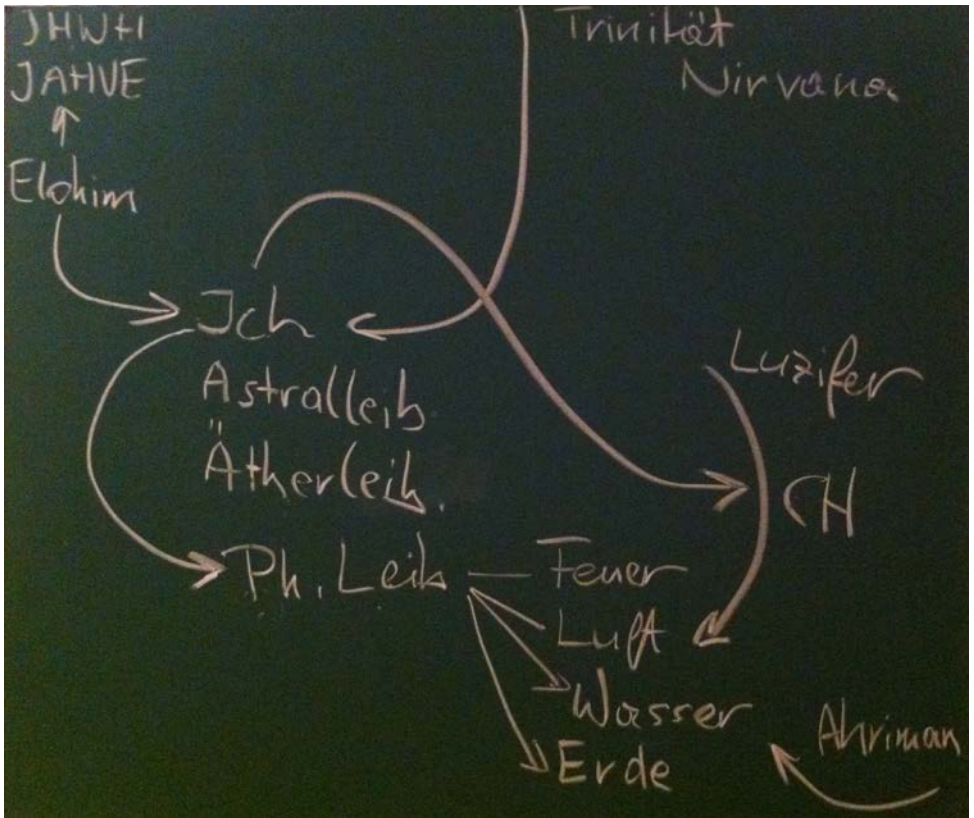 JHWH
JAHVE
Elohim
Trinität
Nirvana
Ich
Astralleib
Ätherleib.
Ph. Leib
Feuer
Luft
Wasser
Erde
Luzifer
CH
Ahriman